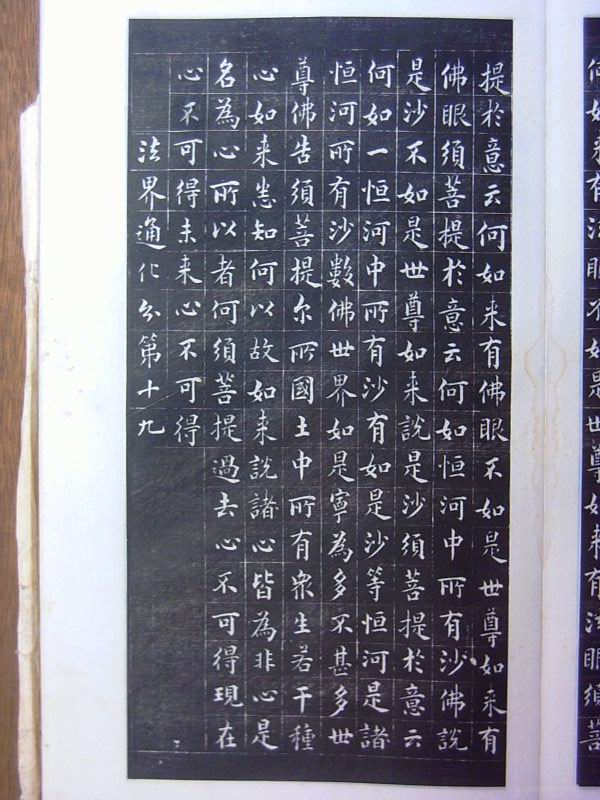 何如來有法眼不如是世尊如來有法眼須菩
提於意云何如來有佛眼不如是世尊如來有
佛眼須菩提於意云何如恒河中所有沙佛說
是沙不如是世尊如來說是沙須菩提於意云
何如一恒河中所有沙有如是沙等恒河是諸
恒河所有沙數佛世界如是寧為多不甚多世
尊佛告須菩提尔所國土中所有衆生若干種
心如來悉知何以故如來說諸心皆為非心是
名為心所以者何須菩提過去心不可得現在
心不可得未來心不可得
法界通化分第十九